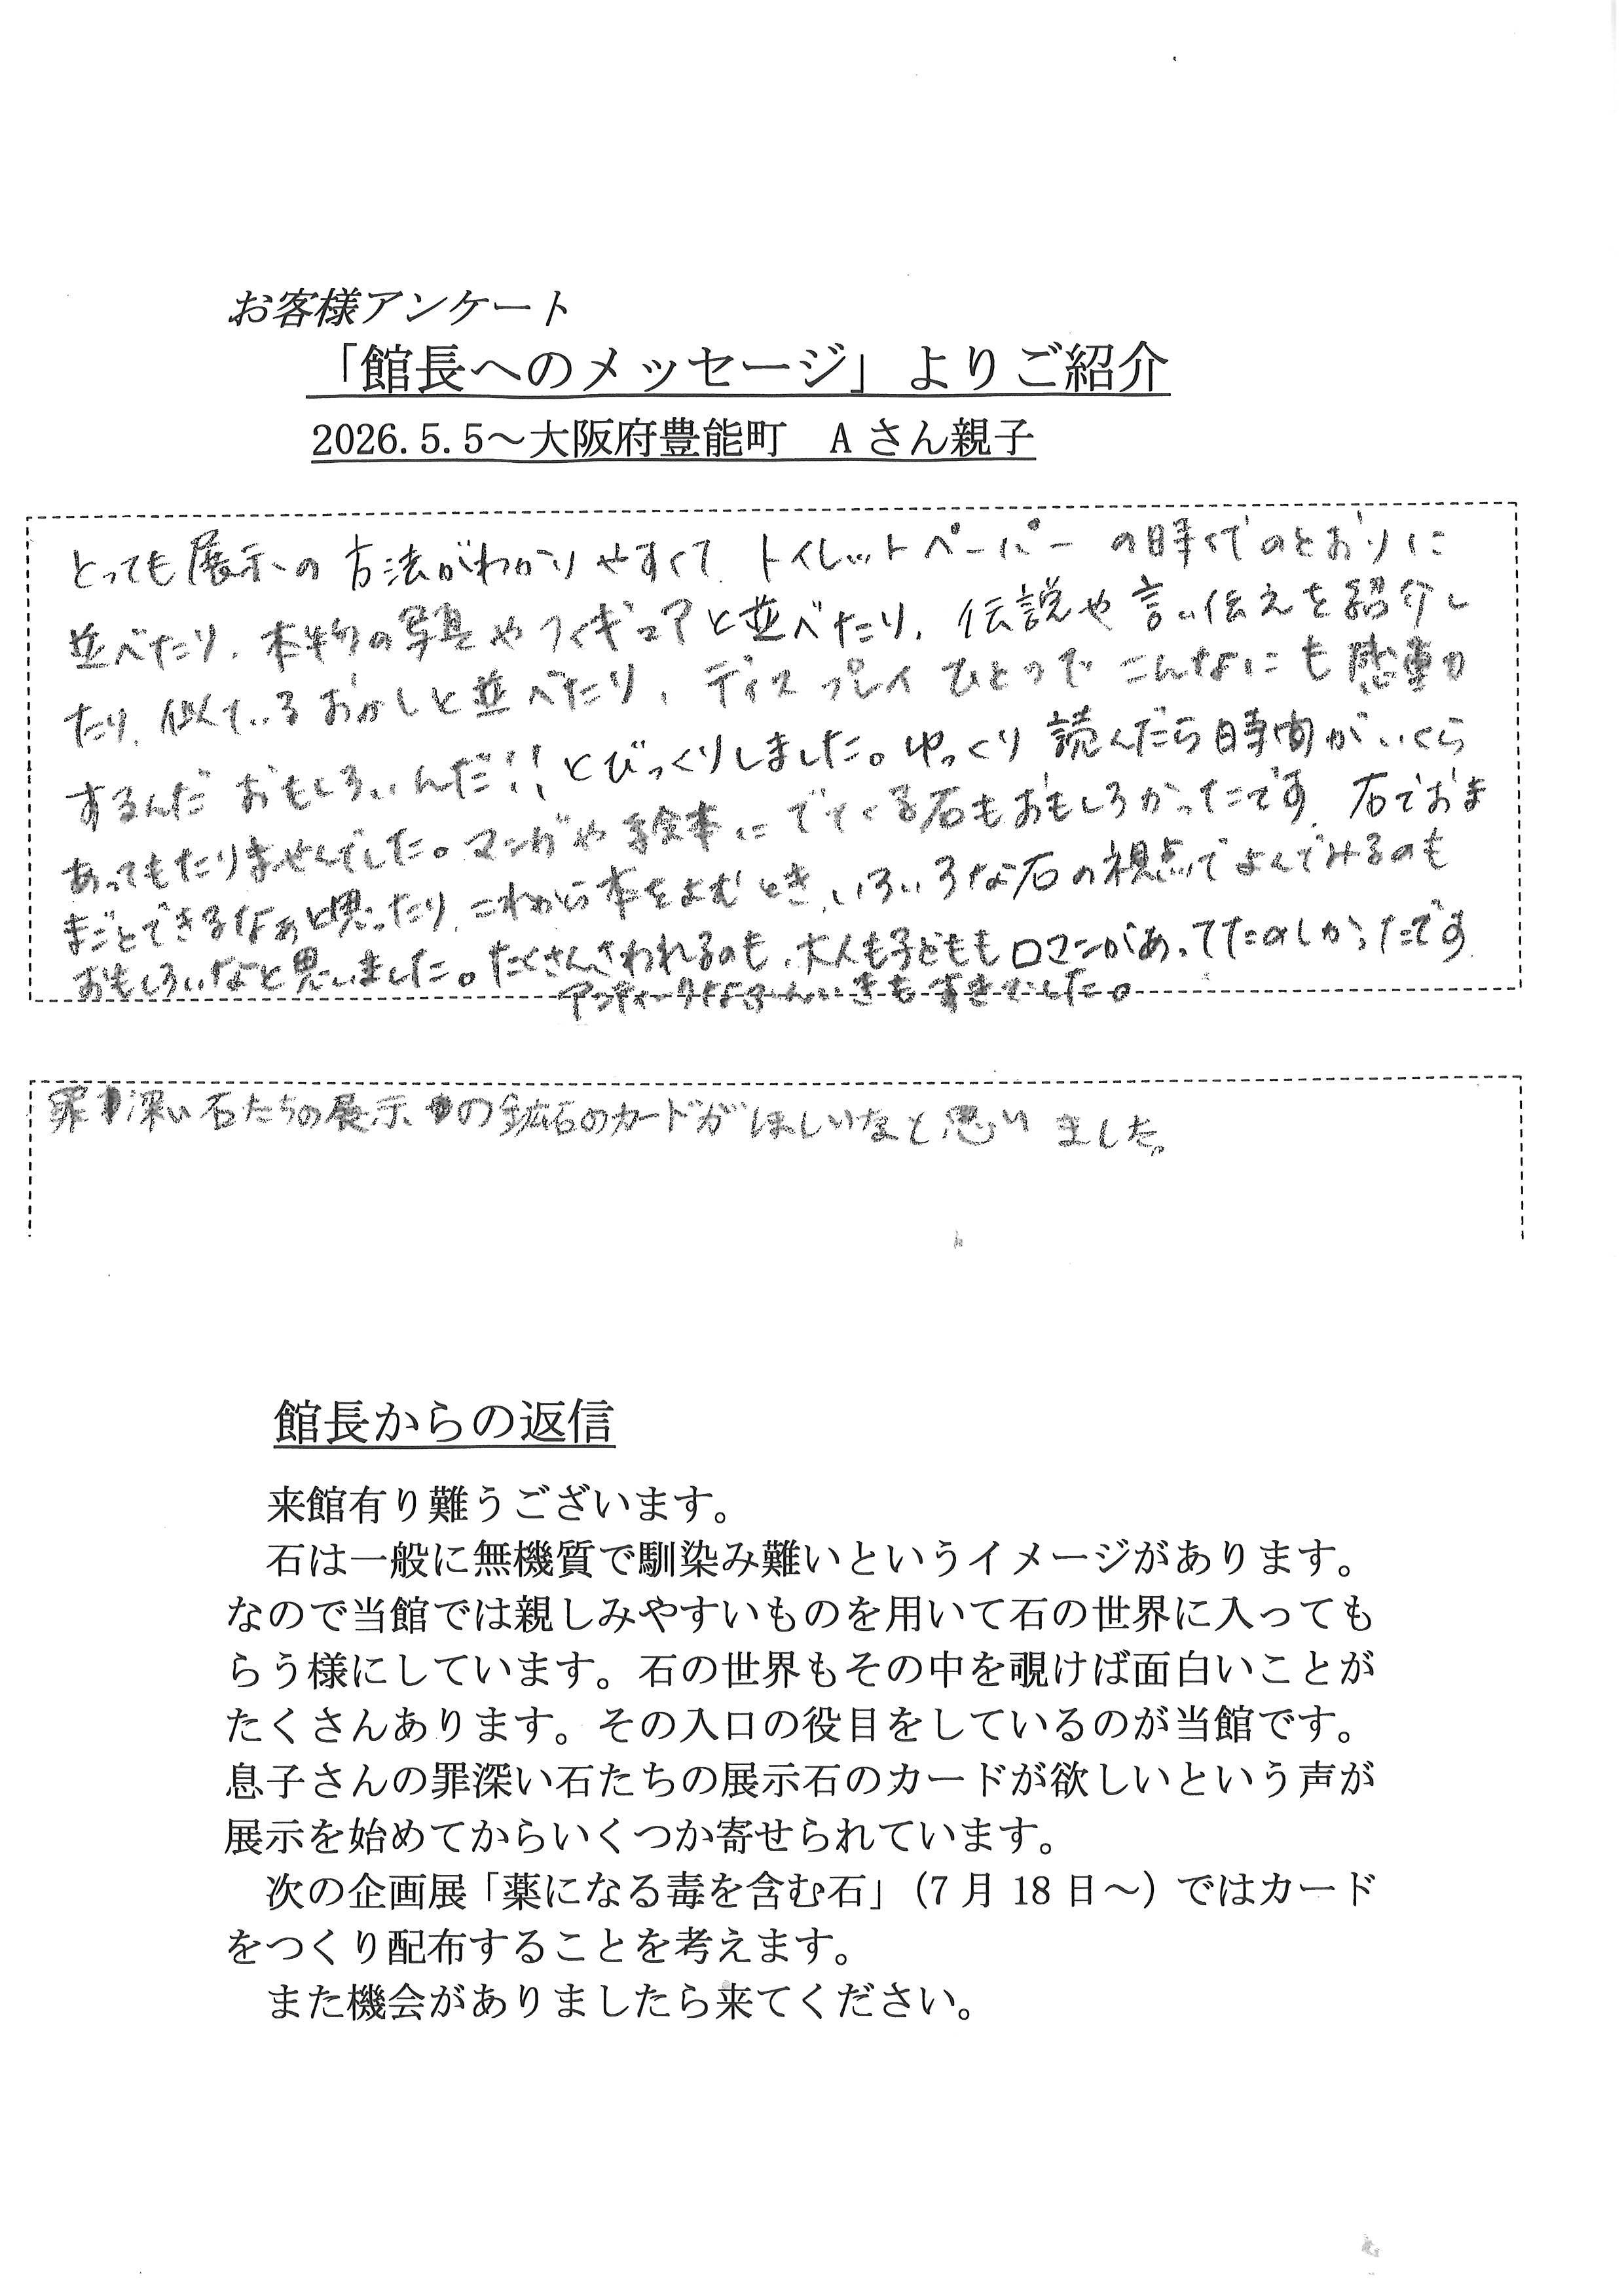 お客様アンケート
「館長へのメッセージ」よりご紹介
2026.5.5～大阪府豊能町　Aさん親子
とっても展示の方法がわかりやすくて、トイレットペーパーの時代のとおりに
並べたり、本物の写真やフィギュアと並べたり、伝説や言い伝えを紹介し
たり、似ているおかしと並べたり、ディスプレイひとつでこんなにも感動
するんだ おもしろいんだ!! とびっくりしました。ゆっくり読んだら時間がいくら
あってもたりませんでした。マンガや絵本にでてくる石もおもしろかったです。石でおま
まごとできるなぁと思ったり、これから本をよむとき、いろいろな石の視点でよんでみるのも
おもしろいなと思いました。たくさんさわれるのも、大人も子どももロマンがあってたのしかったです。
アンティークなふんいきもすきでした。
罪深い石たちの展示の鉱石のカードがほしいなと思いました。
館長からの返信
来館有り難うございます。
石は一般に無機質で馴染み難いというイメージがあります。
なので当館では親しみやすいものを用いて石の世界に入っても
らう様にしています。石の世界もその中を覗けば面白いことが
たくさんあります。その入口の役目をしているのが当館です。
息子さんの罪深い石たちの展示石のカードが欲しいという声が
展示を始めてからいくつか寄せられています。
次の企画展「薬になる毒を含む石」（7月18日～）ではカード
をつくり配布することを考えます。
また機会がありましたら来てください。